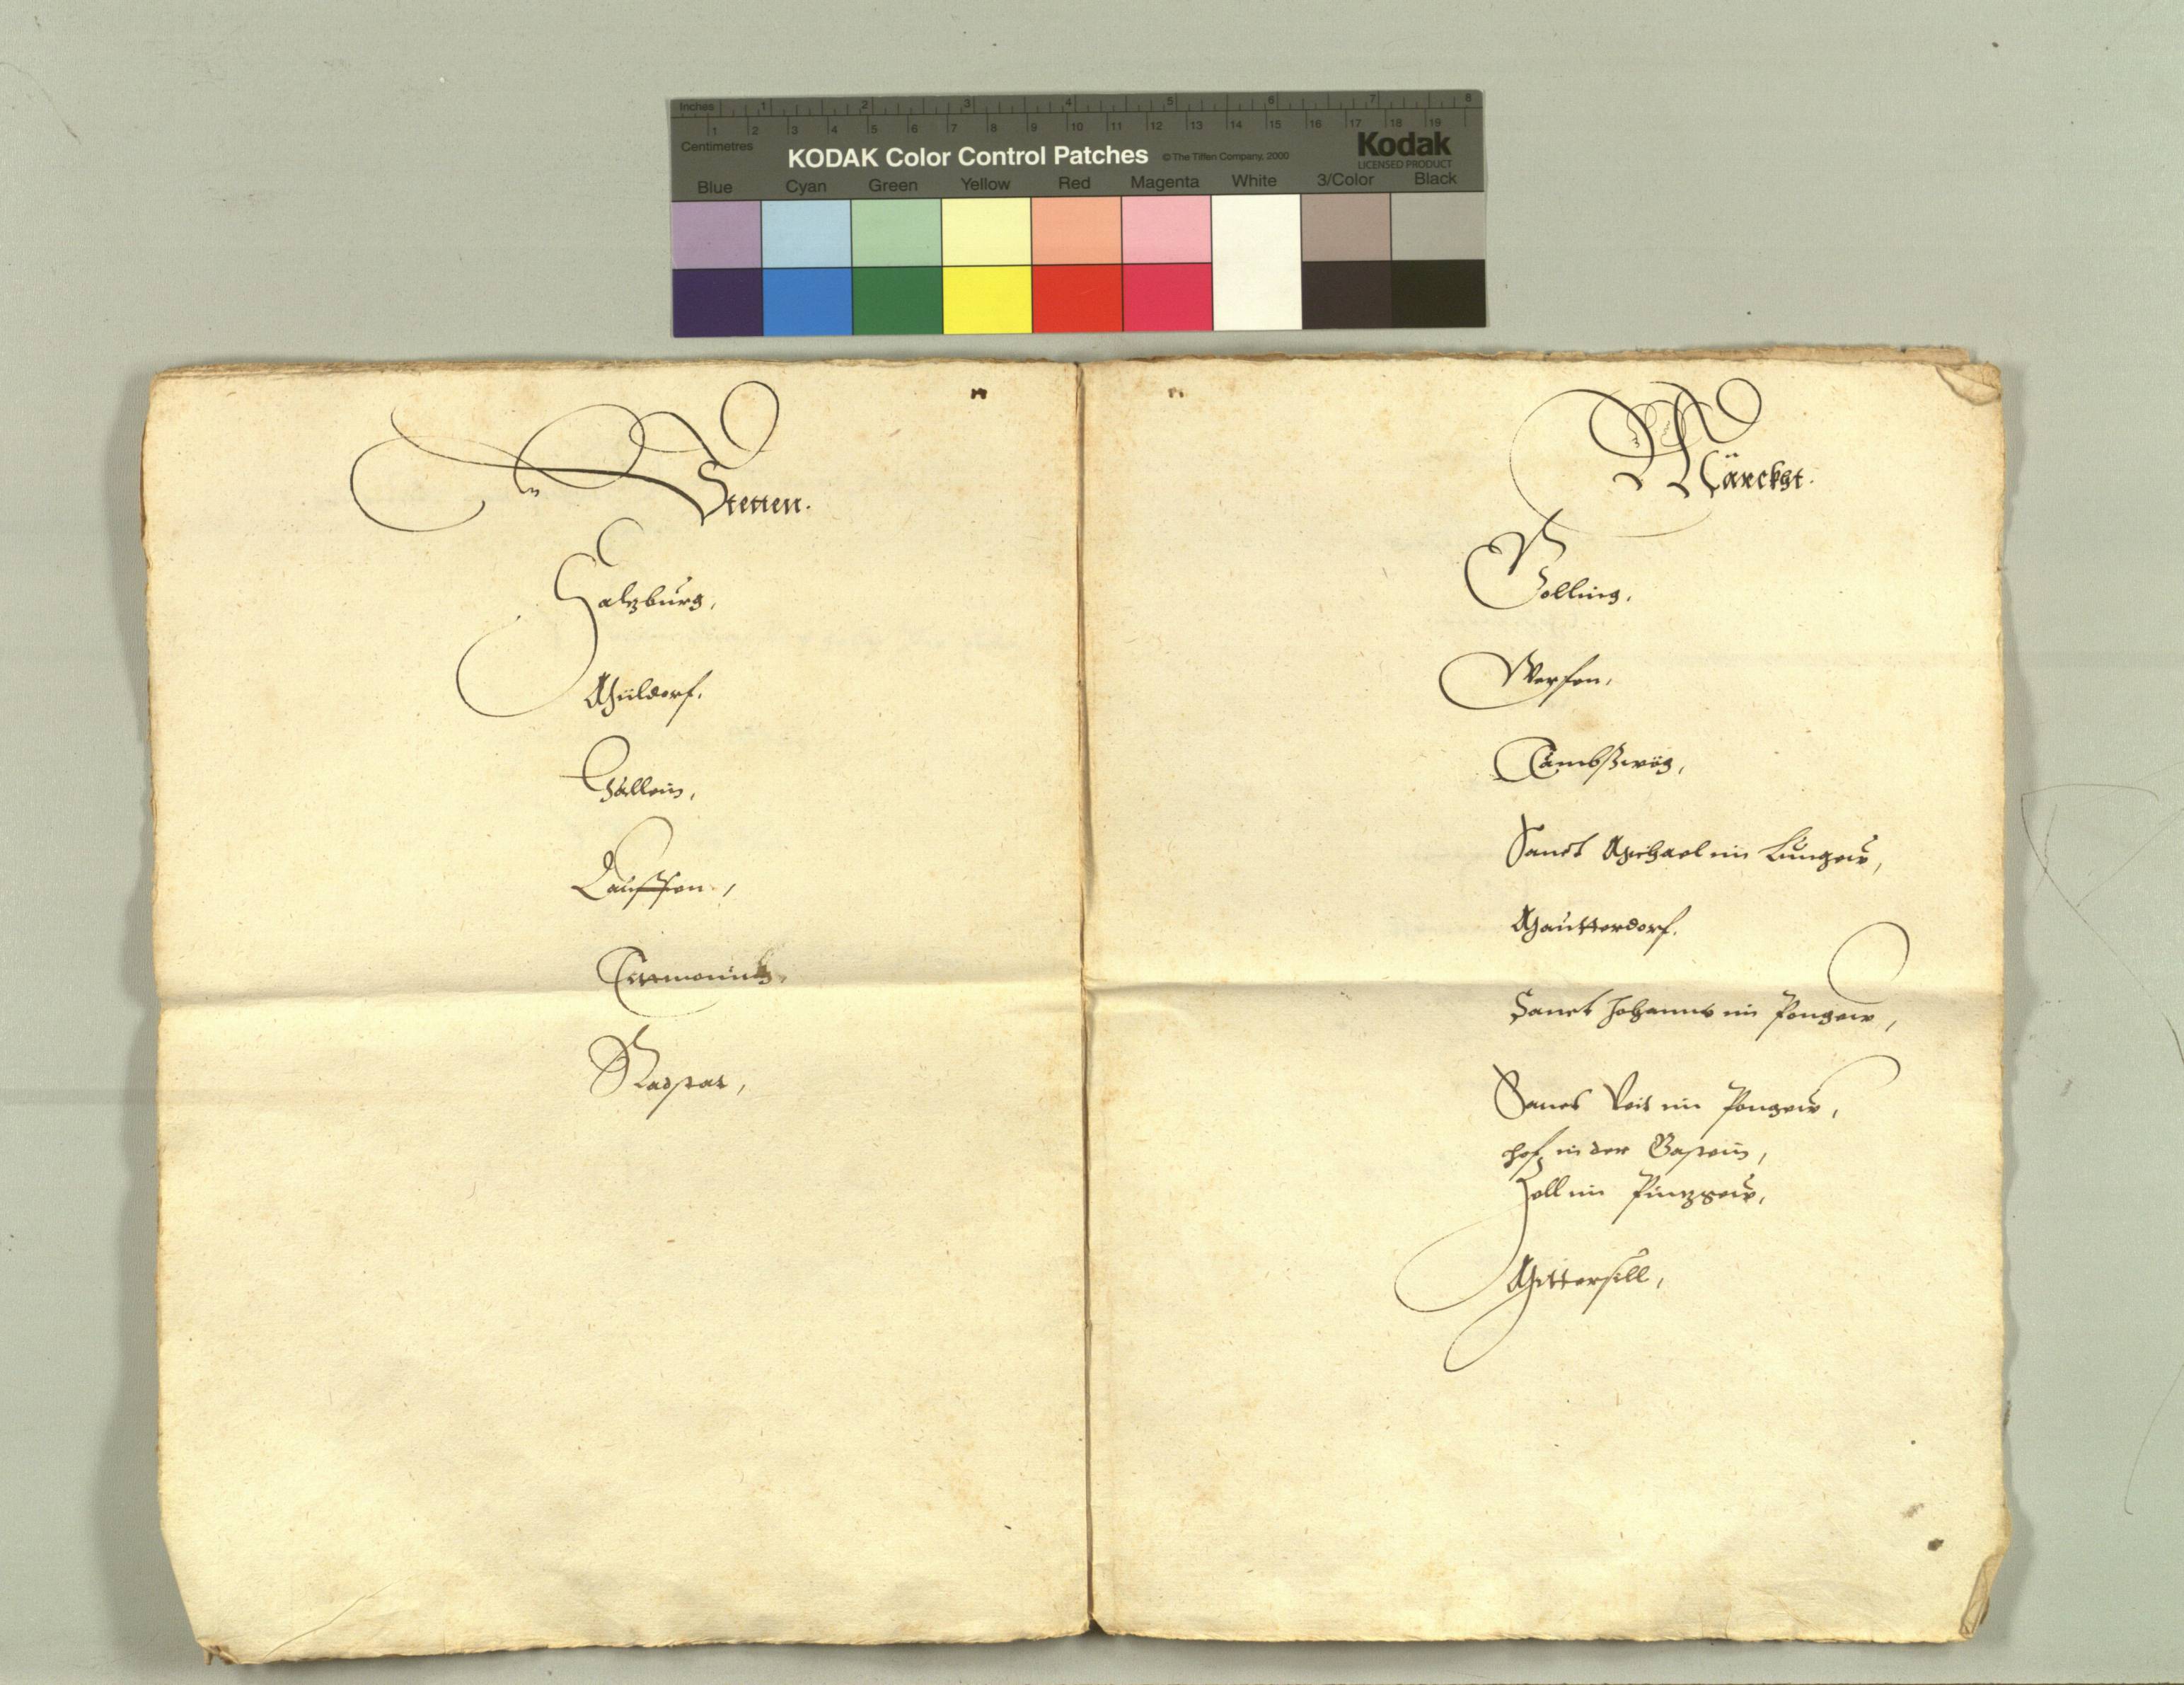 Inches 1 2 3 4 5 6 7 8
1 2 3 4 5 6 7 8 9 10 11 12 13 14 15 16 17 18 19
Centimetres
KODAK Color Control Patches © The Tiffen Company, 2000 Kodak
LICENSED PRODUCT
Blue Cyan Green Yellow Red Magenta White 3/Color Black
Stetten.
Salzburg,
Müldorf.
Hallein,
Lauffen,
Titmoning,
Rastat,
Märckht.
Golling,
Werfen,
Tambßwög,
Sanct Michael im Lungew,
Mautterdorf.
Sanct Johanns im Pongew,
Sanct Veit im Pongew,
Hof in der Gastein,
Zell im Pinzgew,
Mittersill,